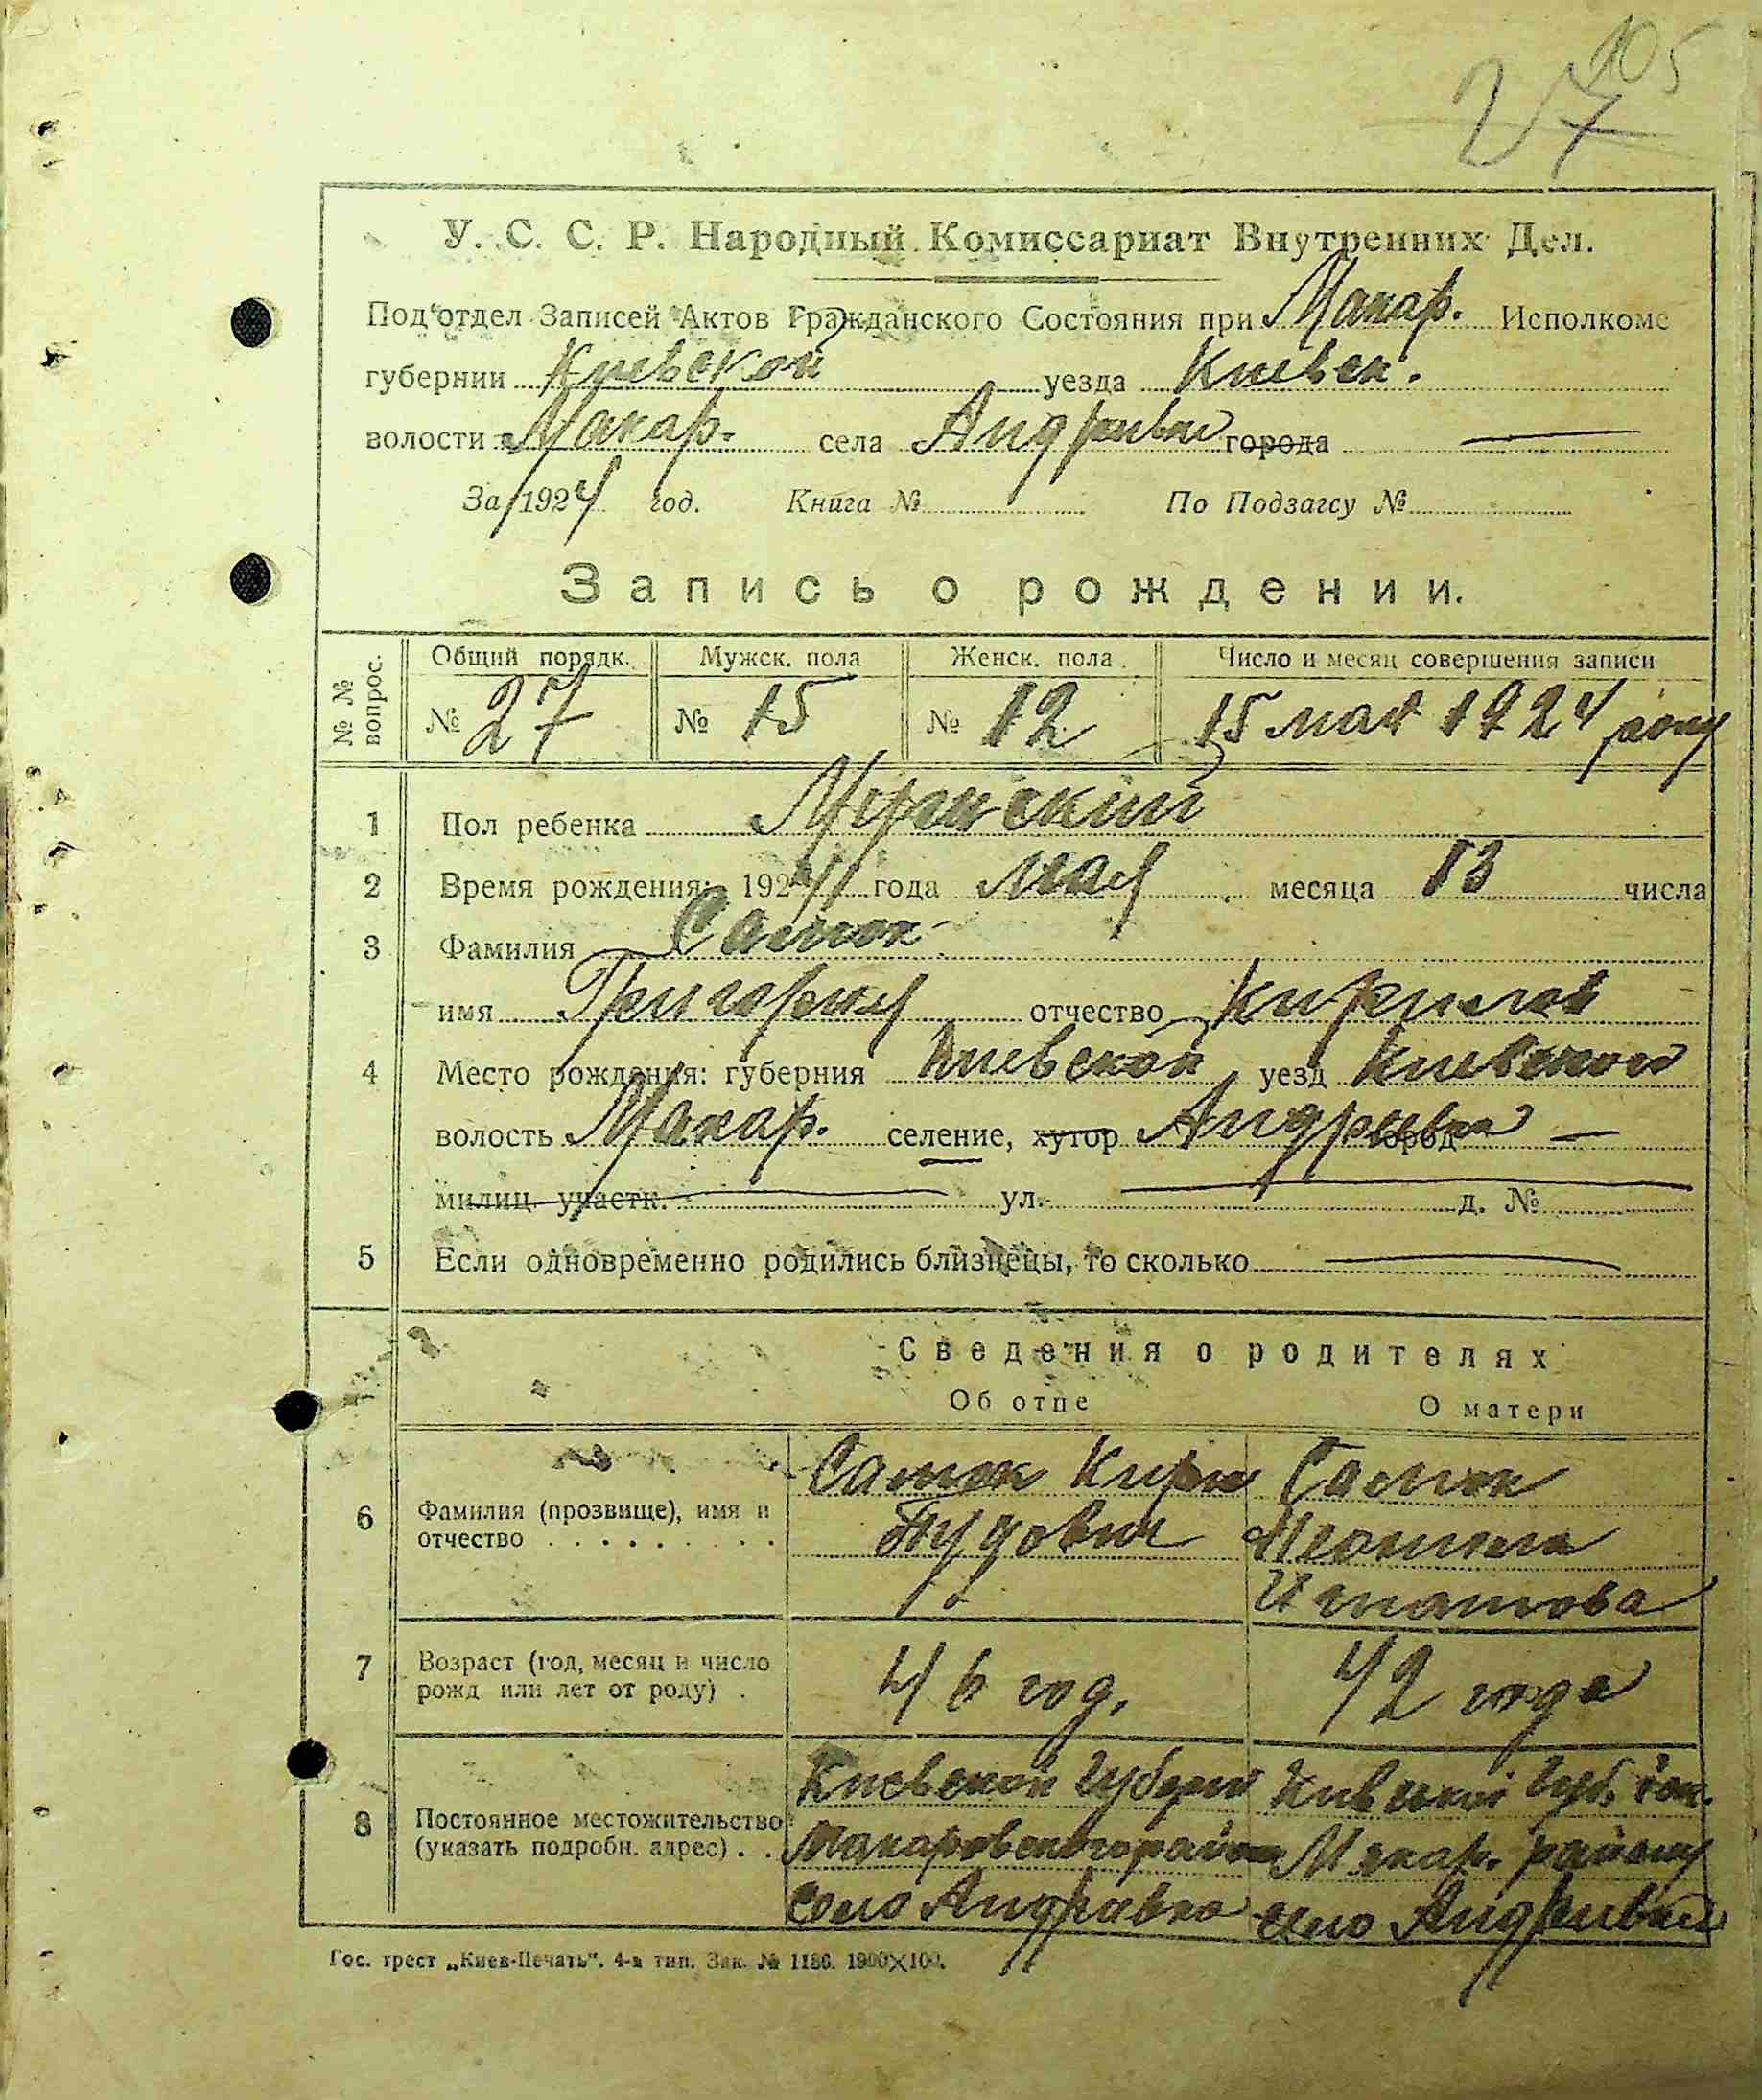 105
27
У. С. С. Р. Народный Комиссариат Внутренних Дел.
Под'отдел Записей Актов Гражданского Состояния при Макар. Исполкоме
губернии Киевской уезда Киевск.
волости Макар. села Андриевки города
За 1924 год. Книга № По Подзагсу №
Запись о рождении.
№ № вопрос. Общий порядк. Мужск. пола Женск. пола Число и месяц совершения записи
№ 27 № 15 № 12 15 мая 1924 году
1 Пол ребенка Мужский
2 Время рождения: 1924 года мая месяца 13 числа
3 Фамилия Самок
имя Григорий отчество Кирилов
4 Место рождения: губерния Киевской уезд Киевской
волость Макар. селение, хутор Андриевка город
милиц. участк. ул. д. №
5 Если одновременно родились близнецы, то сколько
Сведения о родителях
Об отце О матери
6 Фамилия (прозвище), имя и отчество
Самок Кирил
Тудович
Самок
Игнатова
7 Возраст (год, месяц и число рожд или лет от роду)
46 год.
42 года
8 Постоянное местожительство (указать подробн. адрес)
Киевской Губерни
Макаровского района
село Андриевка
Киевской Губ.
Макар. району
село Андриевки
Гос. трест „Киев-Печать". 4-я тип. Зак. № 1186. 1900×100.